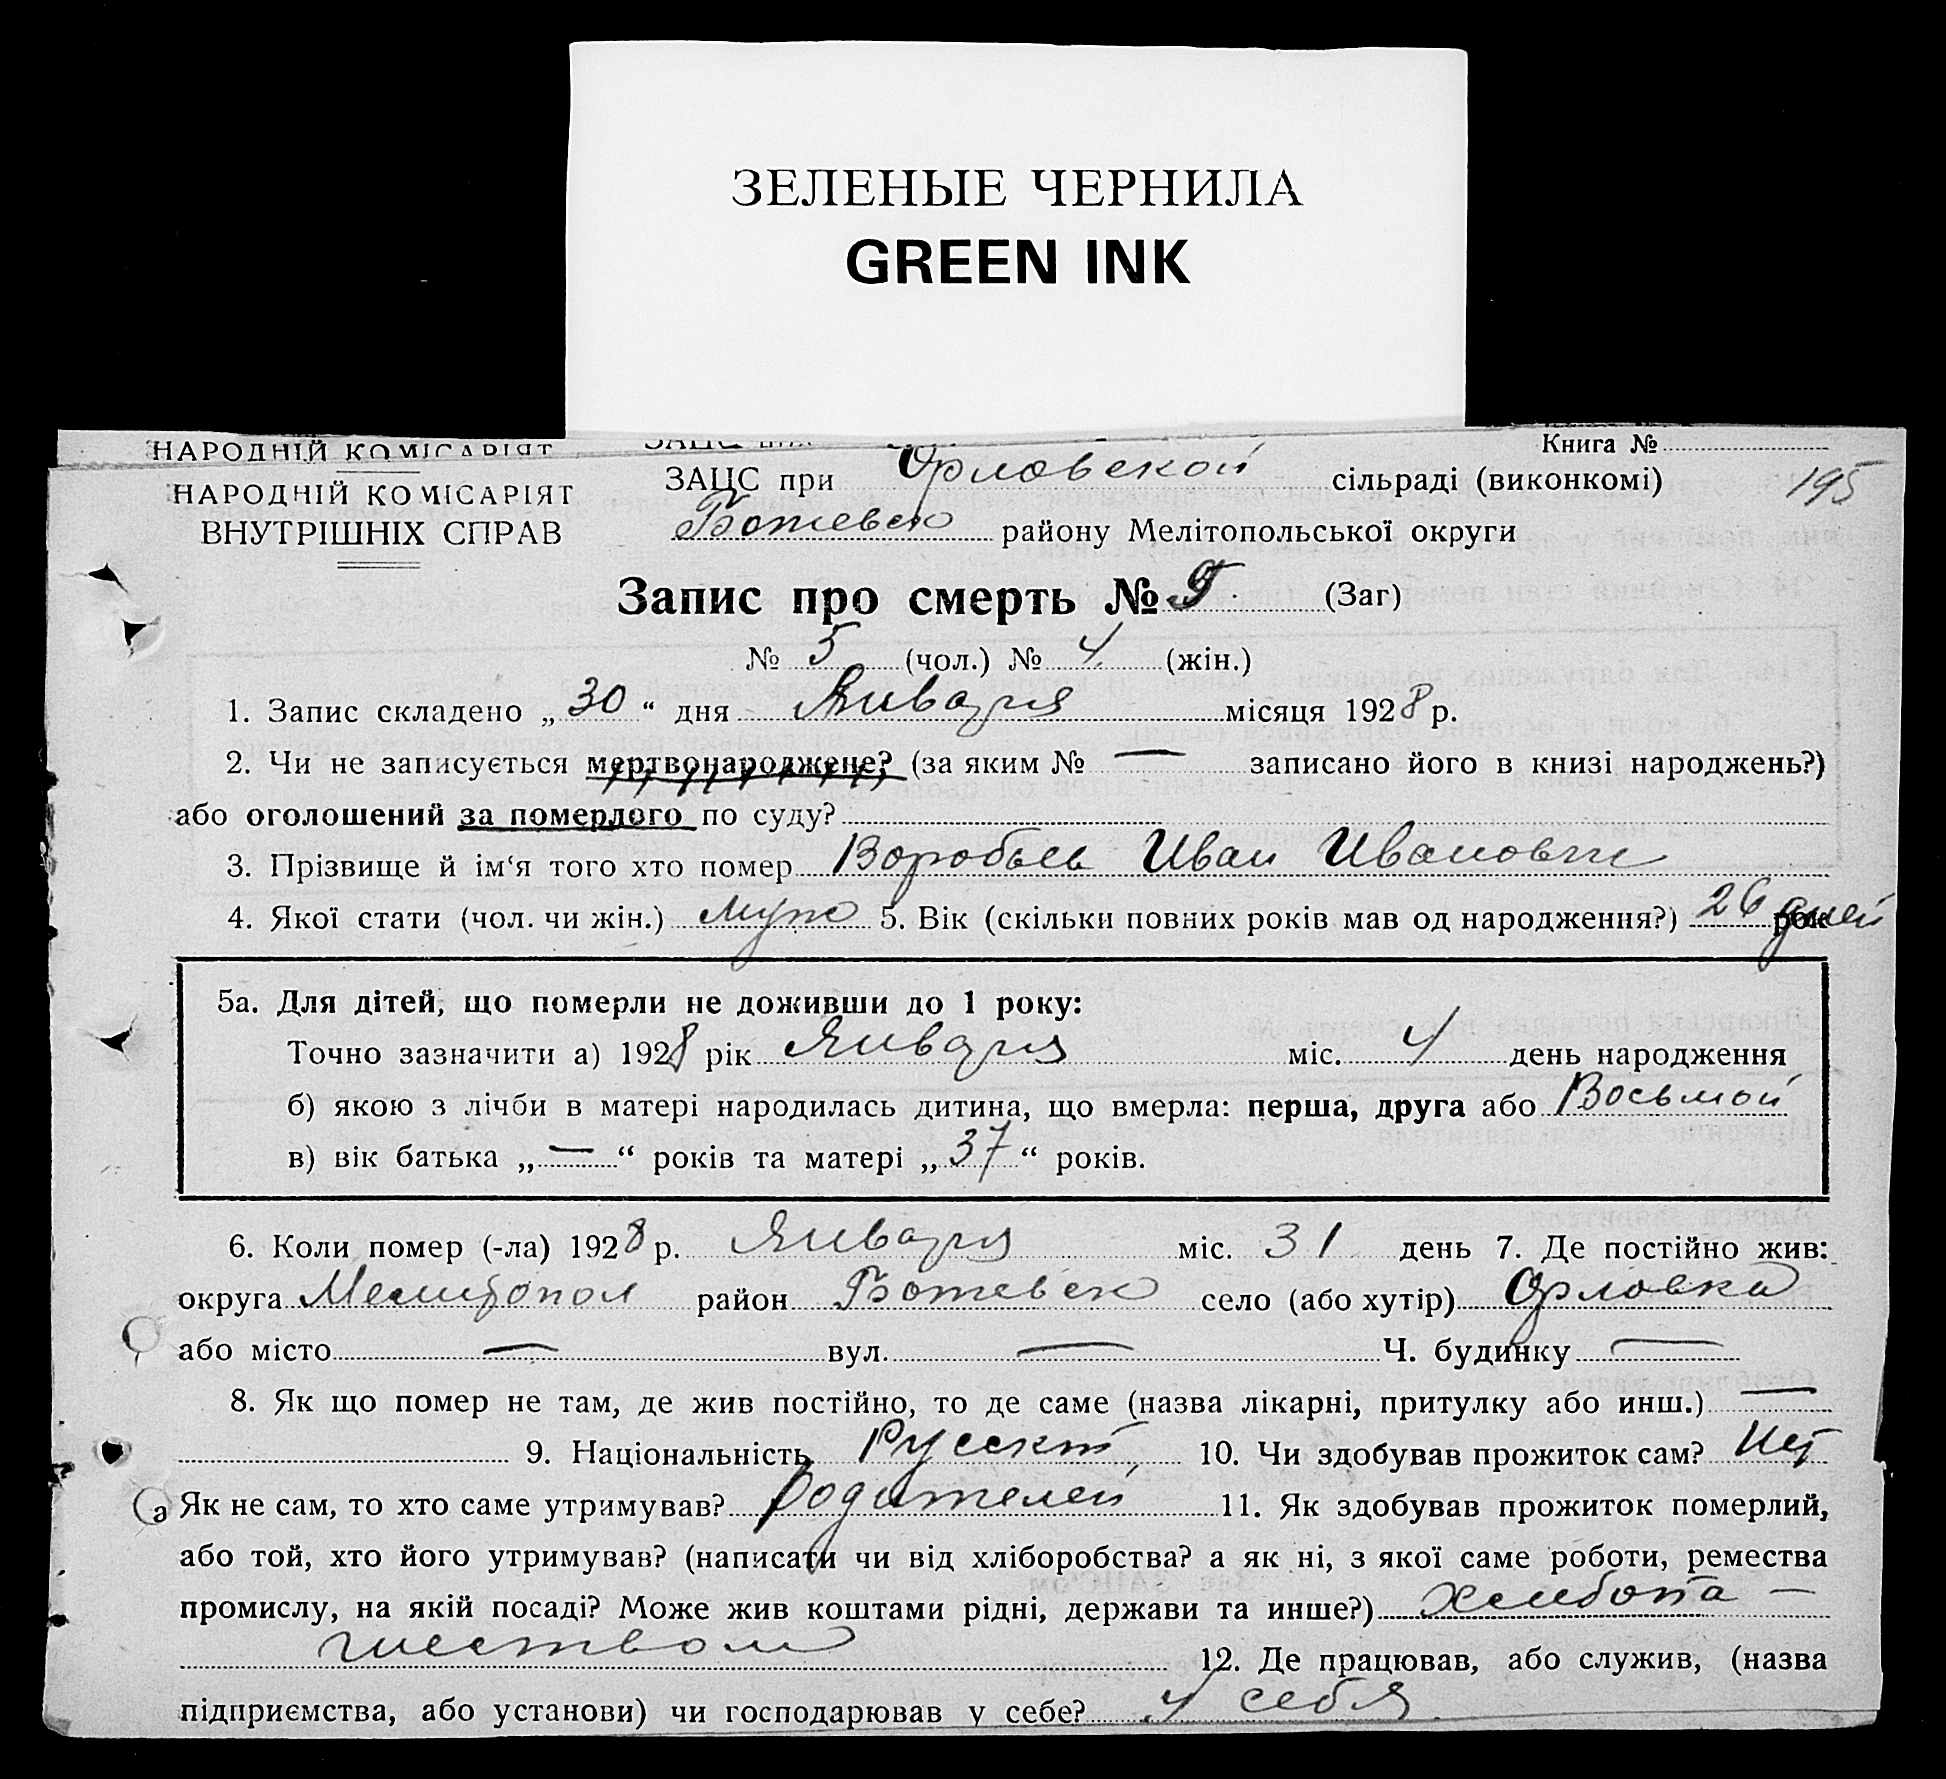 ЗЕЛЕНЫЕ ЧЕРНИЛА
GREEN INK
НАРОДНІЙ КОМІСАРІЯТ
Книга №
НАРОДНІЙ КОМІСАРІЯТ
ВНУТРІШНІХ СПРАВ
195
ЗАЦС при Орловской сільраді (виконкомі)
району Мелітопольської округи
Запис про смерть № (Заг)
№ 5 (чол.) № 4 (жін.)
1. Запис складено „30“ дня Января місяця 1928 р.
2. Чи не записується мертвонароджене? (за яким № — записано його в книзі народжень?)
або оголошений за померлого по суду?
3. Прізвище й ім‘я того хто помер Воробьев Иван Иванович
4. Якої стати (чол. чи жін.) муж 5. Вік (скільки повних років мав од народження?) 26 дней рок
5а. Для дітей, що померли не доживши до 1 року:
Точно зазначити а) 1928 рік Января міс. 4 день народження
б) якою з лічби в матері народилась дитина, що вмерла: перша, друга або Восьмой
в) вік батька „—“ років та матері „37“ років.
6. Коли помер (-ла) 1928 р. Января міс. 31 день 7. Де постійно жив:
округа Мелитопол район Ботевск село (або хутір) Орловка
або місто — вул. — Ч. будинку —
8. Як що помер не там, де жив постійно, то де саме (назва лікарні, притулку або инш.) —
9. Національність Русский 10. Чи здобував прожиток сам? Нет
Як не сам, то хто саме утримував? родителей 11. Як здобував прожиток померлий,
або той, хто його утримував? (написати чи від хліборобства? а як ні, з якої саме роботи, ремества
промислу, на якій посаді? Може жив коштами рідні, держави та инше?) хлебопа-
шеством 12. Де працював, або служив, (назва
підприємства, або установи) чи господарював у себе? у себя